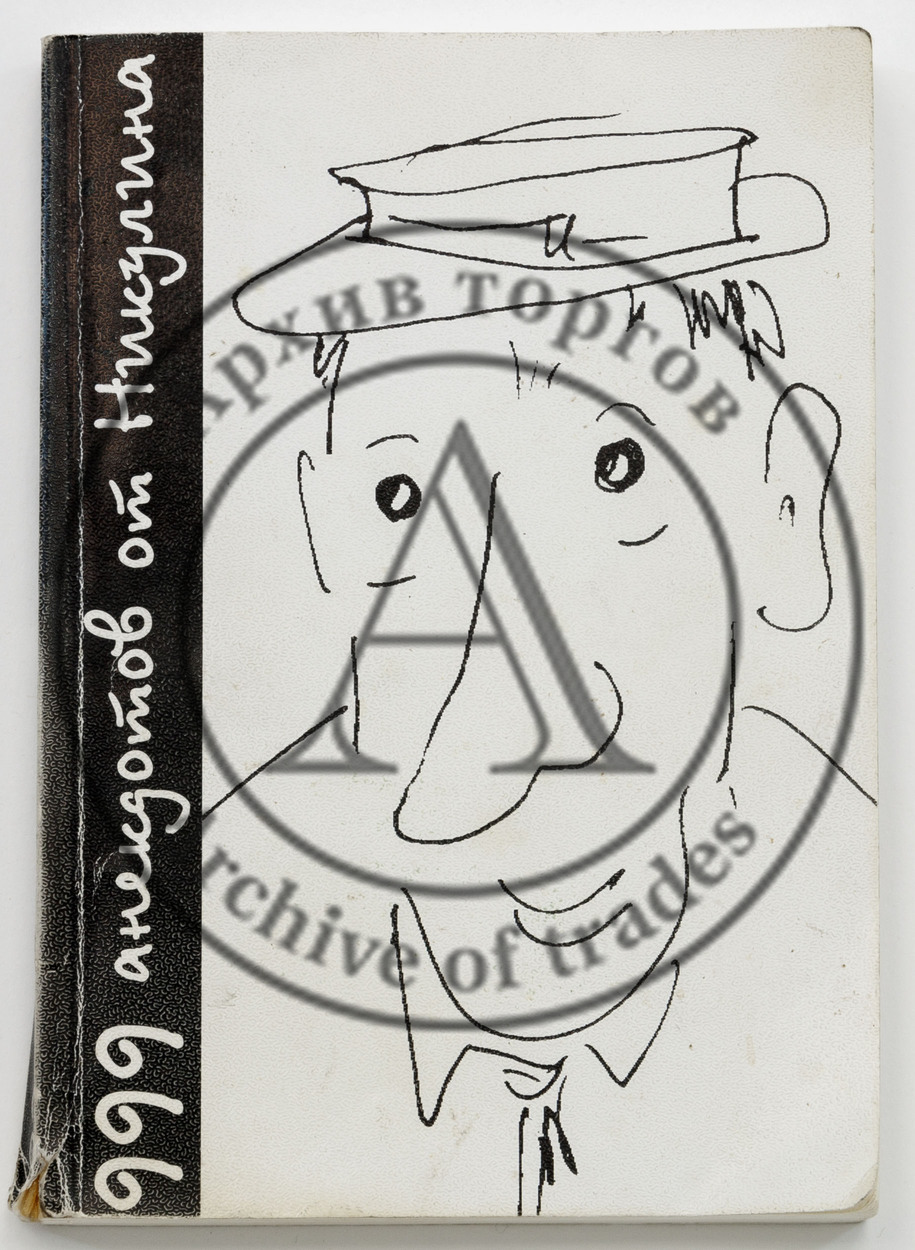 999 анекдотов от Никулина
Архив торгов
Archive of trades
А